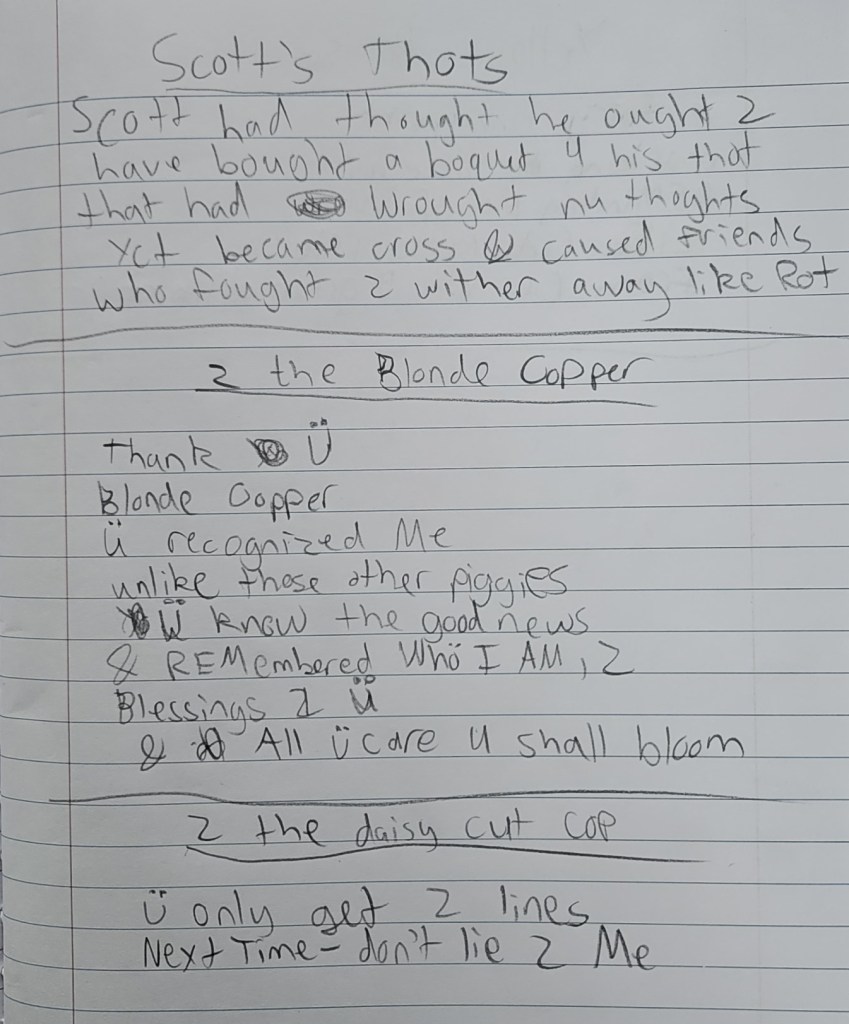 Scott's Thots
Scott had thought he ought 2
have bought a boquet 4 his thot
that had wrought nu thoghts
Yet became cross & caused friends
who fought 2 wither away like Rot
2 the Blonde Copper
thank Ü
Blonde Copper
ü recognized Me
unlike those other piggies
Ü know the good news
& REMembered Whö I AM, 2
Blessings 2 ü
& All ü care 4 shall bloom
2 the daisy cut cop
Ü only get 2 lines
Next Time - don't lie 2 Me